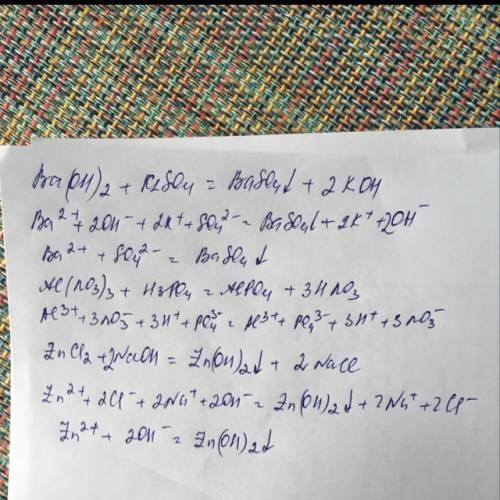 Ba(OH)₂ + K₂SO₄ = BaSO₄↓ + 2KOH
Ba²⁺ + 2OH⁻ + 2K⁺ + SO₄²⁻ = BaSO₄↓ + 2K⁺ + 2OH⁻
Ba²⁺ + SO₄²⁻ = BaSO₄↓
Al(NO₃)₃ + H₃PO₄ = AlPO₄ + 3HNO₃
Al³⁺ + 3NO₃⁻ + 3H⁺ + PO₄³⁻ = Al³⁺ + PO₄³⁻ + 3H⁺ + 3NO₃⁻
ZnCl₂ + 2NaOH = Zn(OH)₂↓ + 2NaCl
Zn²⁺ + 2Cl⁻ + 2Na⁺ + 2OH⁻ = Zn(OH)₂↓ + 2Na⁺ + 2Cl⁻
Zn²⁺ + 2OH⁻ = Zn(OH)₂↓